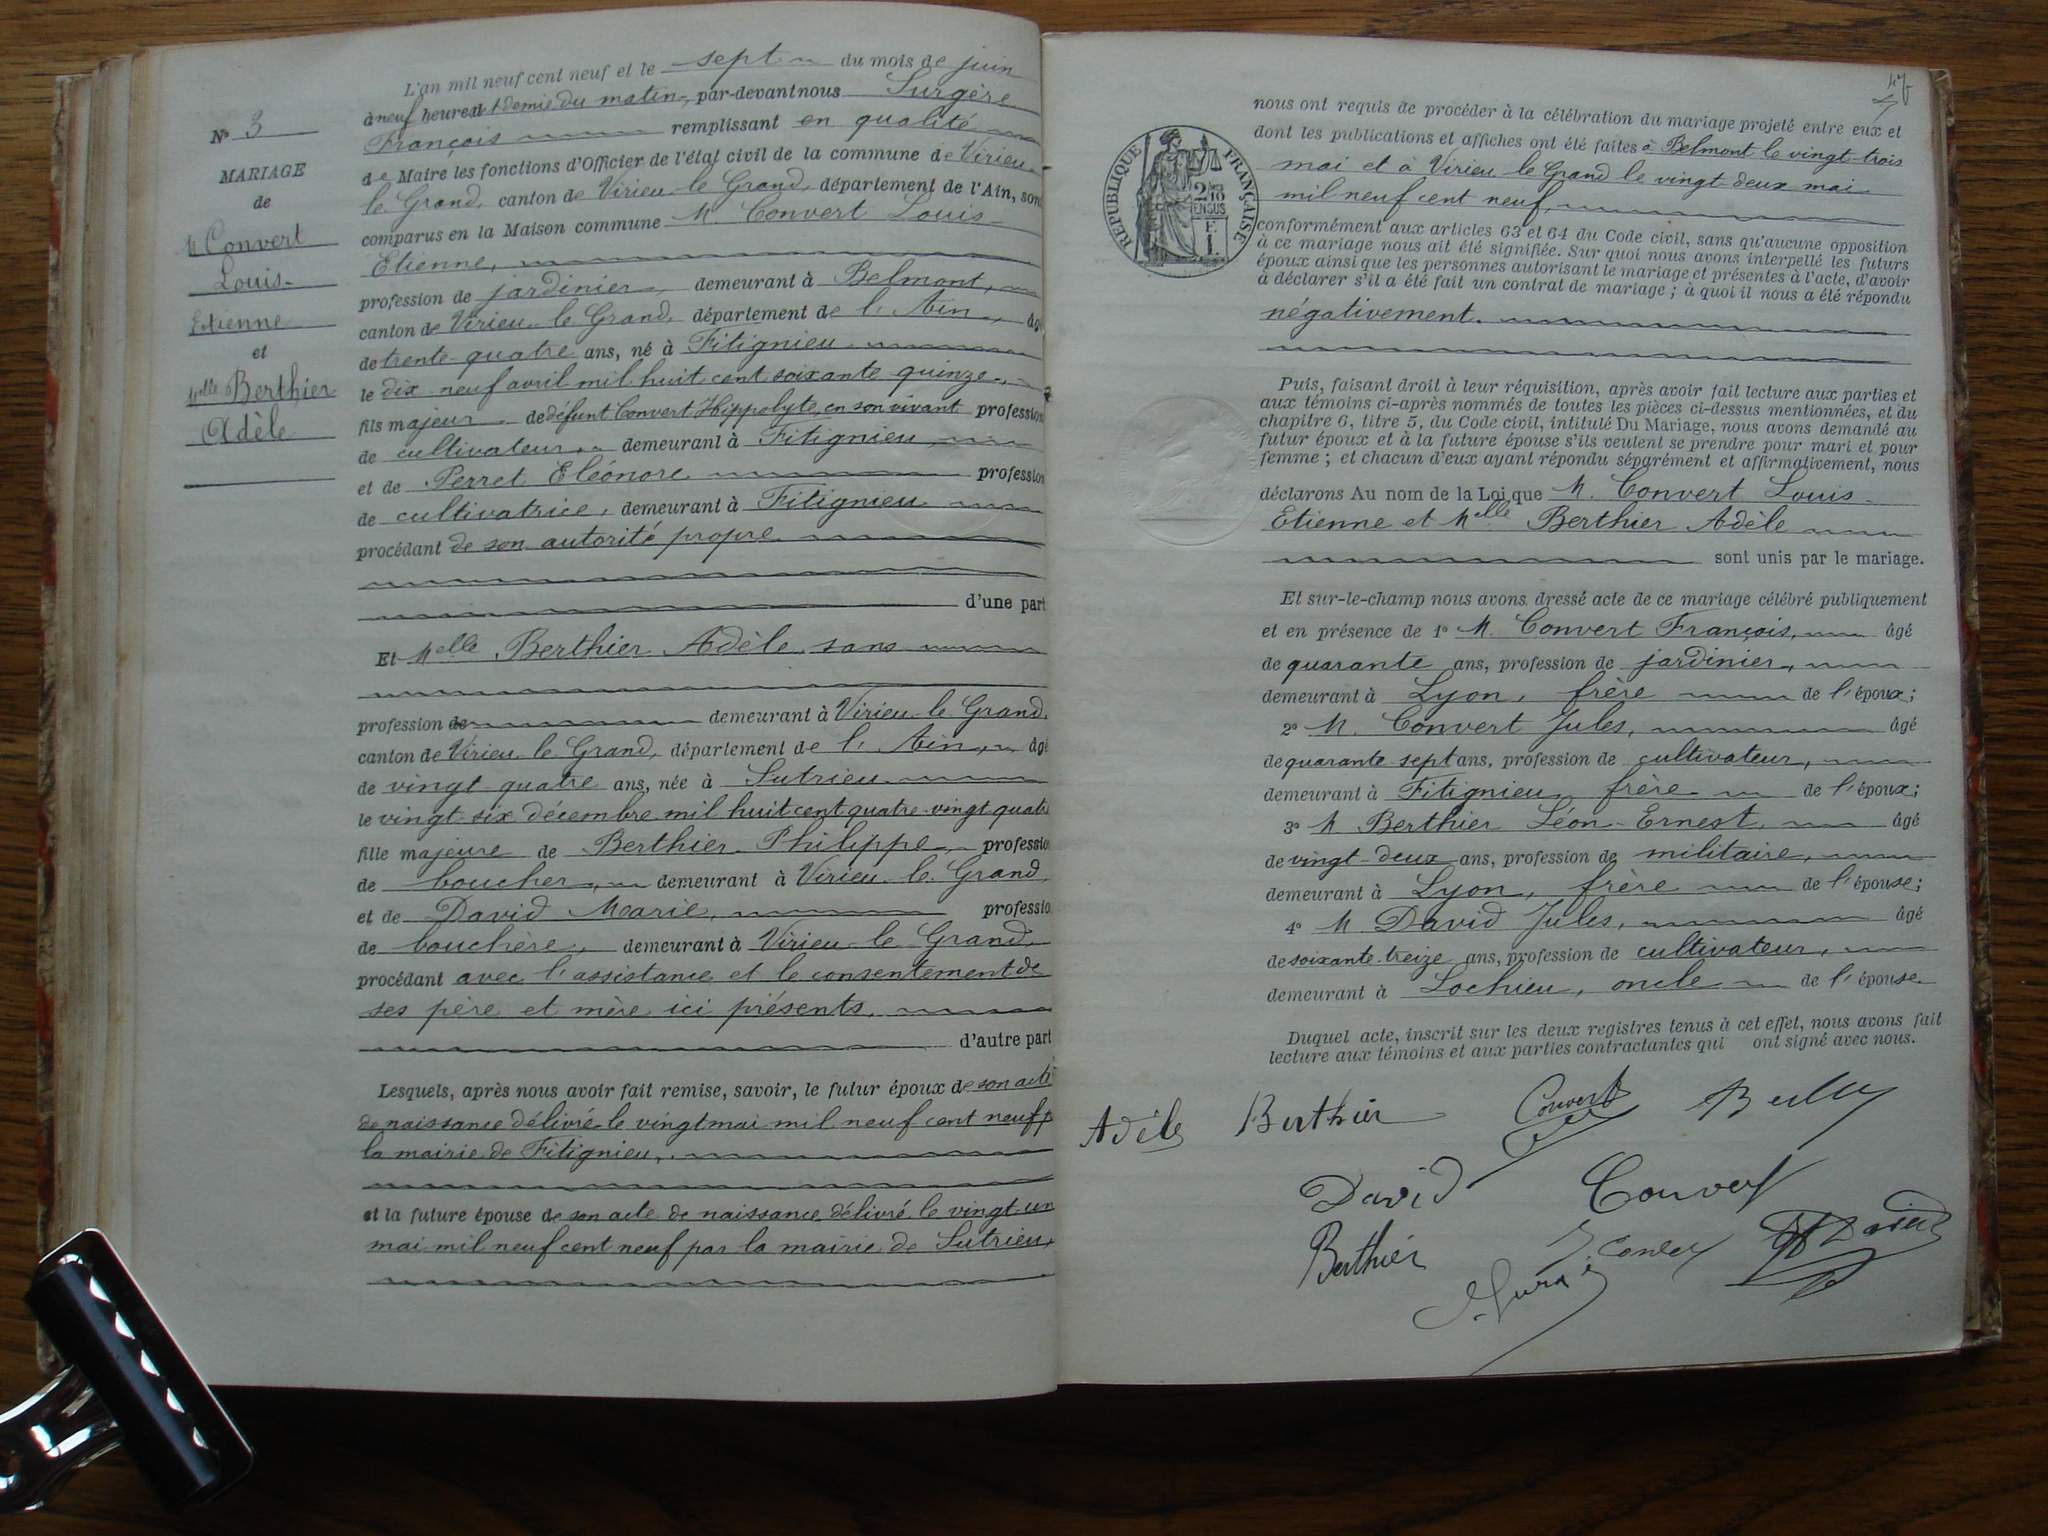 L'an mil neuf cent neuf et le sept du mois de juin
à neuf heures et demie du matin, par-devant nous Surgère
François remplissant en qualité
de Maire les fonctions d'Officier de l'état civil de la commune de Virieu-
le-Grand, canton de Virieu-le-Grand, département de l'Ain, sont
comparus en la Maison commune M. Convert Louis
Etienne,
profession de jardinier, demeurant à Belmont,
canton de Virieu-le-Grand, département de l'Ain, âgé
de trente-quatre ans, né à Fitignieu
le dix-neuf avril mil huit cent soixante quinze,
fils majeur de défunt Convert Hippolyte, en son vivant profession
de cultivateur, demeurant à Fitignieu,
et de Perret Eléonore profession
de cultivatrice, demeurant à Fitignieu
procédant de son autorité propre
d'une part
Et Melle Berthier Adèle, sans
profession de demeurant à Virieu-le-Grand,
canton de Virieu-le-Grand, département de l'Ain, âgé
de vingt-quatre ans, née à Sutrieu
le vingt-six décembre mil huit cent quatre-vingt-quatre
fille majeure de Berthier Philippe, profession
de boucher, demeurant à Virieu-le-Grand,
et de David Marie, profession
de bouchère, demeurant à Virieu-le-Grand,
procédant avec l'assistance et le consentement de
ses père et mère ici présents,
d'autre part
Lesquels, après nous avoir fait remise, savoir, le futur époux de son acte
de naissance délivré le vingt mai mil neuf cent neuf p
la mairie de Fitignieu,
et la future épouse de son acte de naissance délivré le vingt-un
mai mil neuf cent neuf par la mairie de Sutrieu,
No 3
MARIAGE
de
M Convert
Louis-
Etienne
et
Melle Berthier
Adèle
47
RÉPUBLIQUE FRANÇAISE
2/10
EN SUS
F.
1.
nous ont requis de procéder à la célébration du mariage projeté entre eux et
dont les publications et affiches ont été faites à Belmont le vingt-trois
mai et à Virieu-le-Grand le vingt-deux mai
mil neuf cent neuf,
conformément aux articles 63 et 64 du Code civil, sans qu'aucune opposition
à ce mariage nous ait été signifiée. Sur quoi nous avons interpellé les futurs
époux ainsi que les personnes autorisant le mariage et présentes à l'acte, d'avoir
à déclarer s'il a été fait un contrat de mariage ; à quoi il nous a été répondu
négativement.
Puis, faisant droit à leur réquisition, après avoir fait lecture aux parties et
aux témoins ci-après nommés de toutes les pièces ci-dessus mentionnées, et du
chapitre 6, titre 5, du Code civil, intitulé Du Mariage, nous avons demandé au
futur époux et à la future épouse s'ils veulent se prendre pour mari et pour
femme ; et chacun d'eux ayant répondu séparément et affirmativement, nous
déclarons Au nom de la Loi que M. Convert Louis-
Etienne et Melle Berthier Adèle
sont unis par le mariage.
Et sur-le-champ nous avons dressé acte de ce mariage célébré publiquement
et en présence de 1o M. Convert François, âgé
de quarante ans, profession de jardinier,
demeurant à Lyon, frère de l'époux ;
2o M. Convert Jules, âgé
de quarante-sept ans, profession de cultivateur,
demeurant à Fitignieu, frère de l'époux ;
3o M Berthier Léon-Ernest, âgé
de vingt-deux ans, profession de militaire,
demeurant à Lyon, frère de l'épouse ;
4o M David Jules, âgé
de soixante-treize ans, profession de cultivateur,
demeurant à Lochieu, oncle de l'épouse.
Duquel acte, inscrit sur les deux registres tenus à cet effet, nous avons fait
lecture aux témoins et aux parties contractantes qui ont signé avec nous.
Adèle Berthier Convert
David Convert
Berthier David